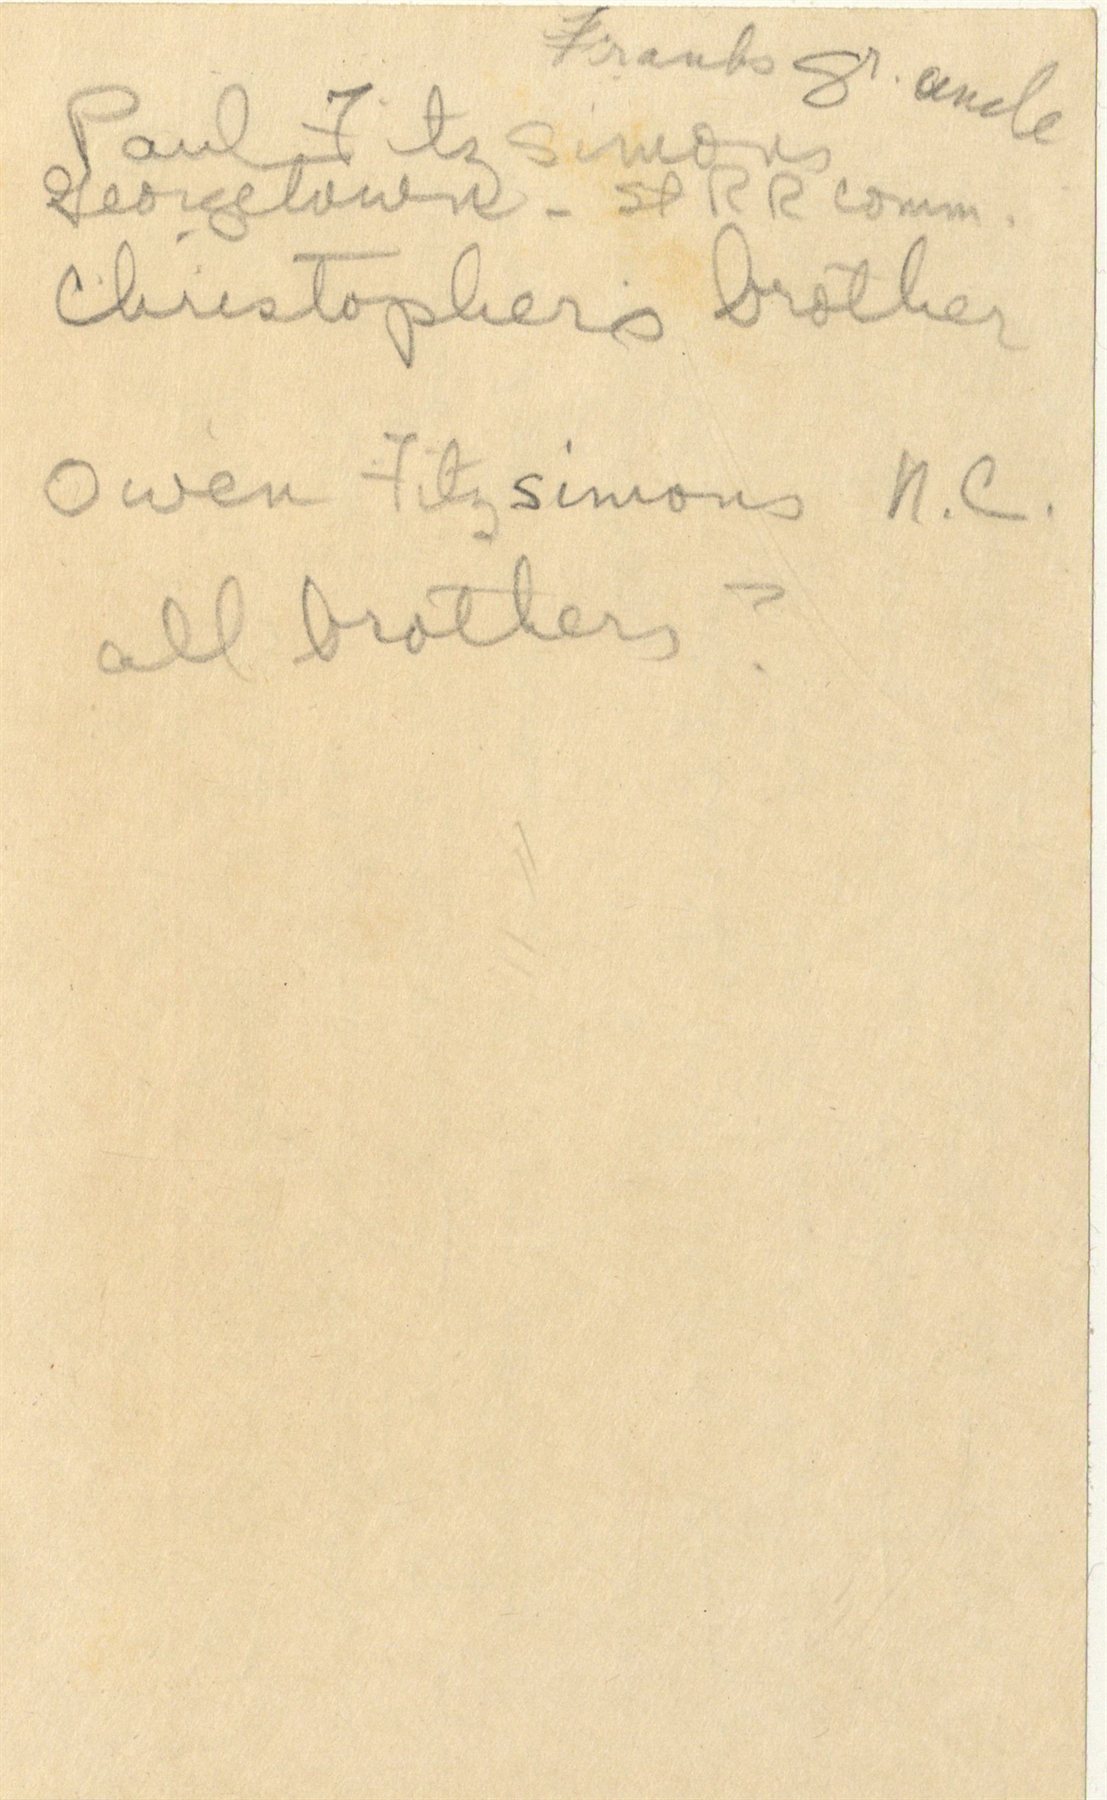 Franks gr. uncle
Paul Fitzsimons
Georgetown - St R R comm.
Christopher's brother
Owen Fitzsimons N.C.
all brothers?